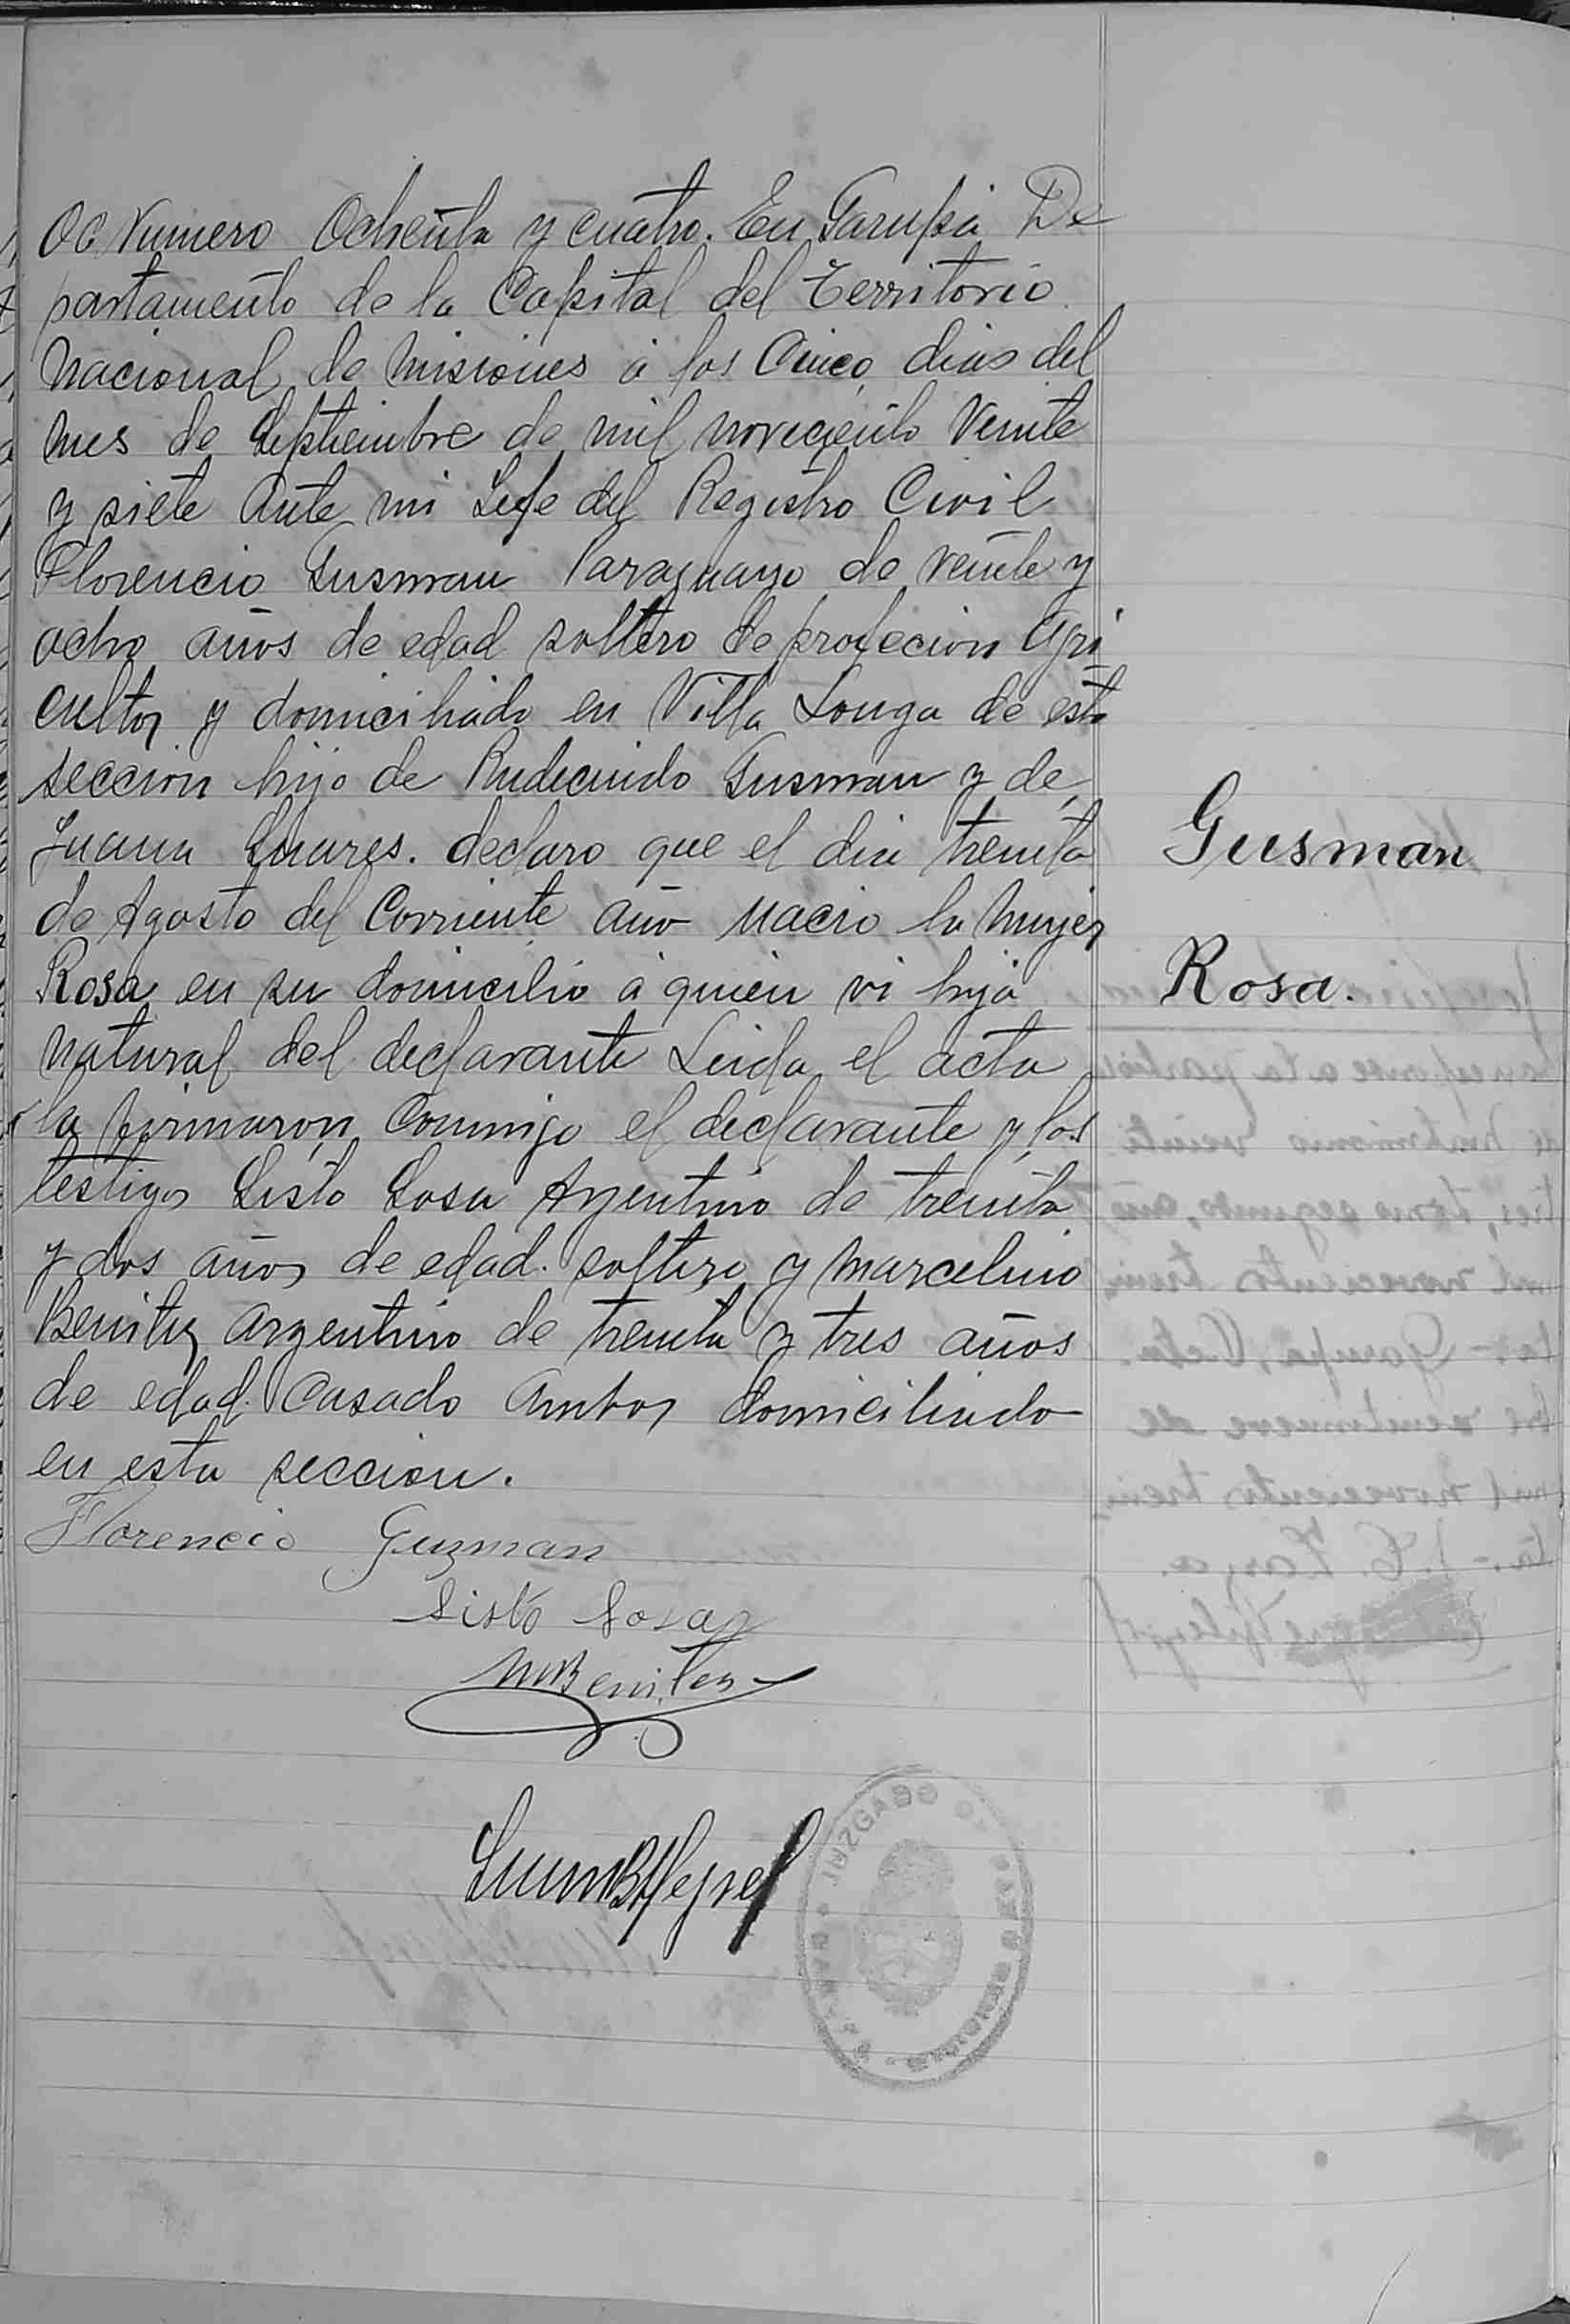 Numero Ochenta y cuatro. En Garupá De
partamento de la Capital del Territorio
Nacional de Misiones á los Cinco dias del
mes de Septiembre de mil noveciento Veinte
y siete Ante mi Jefe del Registro Civil
Florencio Gusman Paraguayo de veinte y
ocho años de edad soltero de profecion Agri
cultor y domiciliado en Villa Longa de esta
seccion hijo de Rudecindo Gusman y de
Juana Suares. declaro que el dia treinta
de Agosto del Corriente año nacio la Mujer
Rosa en su domicilio á quien vi hija
natural del declarante Leida el acta
la firmaron Conmigo el declarante y los
testigos Sisto Sosa Argentino de treinta
y dos años de edad. soltero y Marcelino
Benitez Argentino de treinta y tres años
de edad. Casado Ambos domiciliado
en esta seccion.
Gusman
Rosa.
Florencio Guzman
Sisto Sosa
MBenitez
JUZGADO